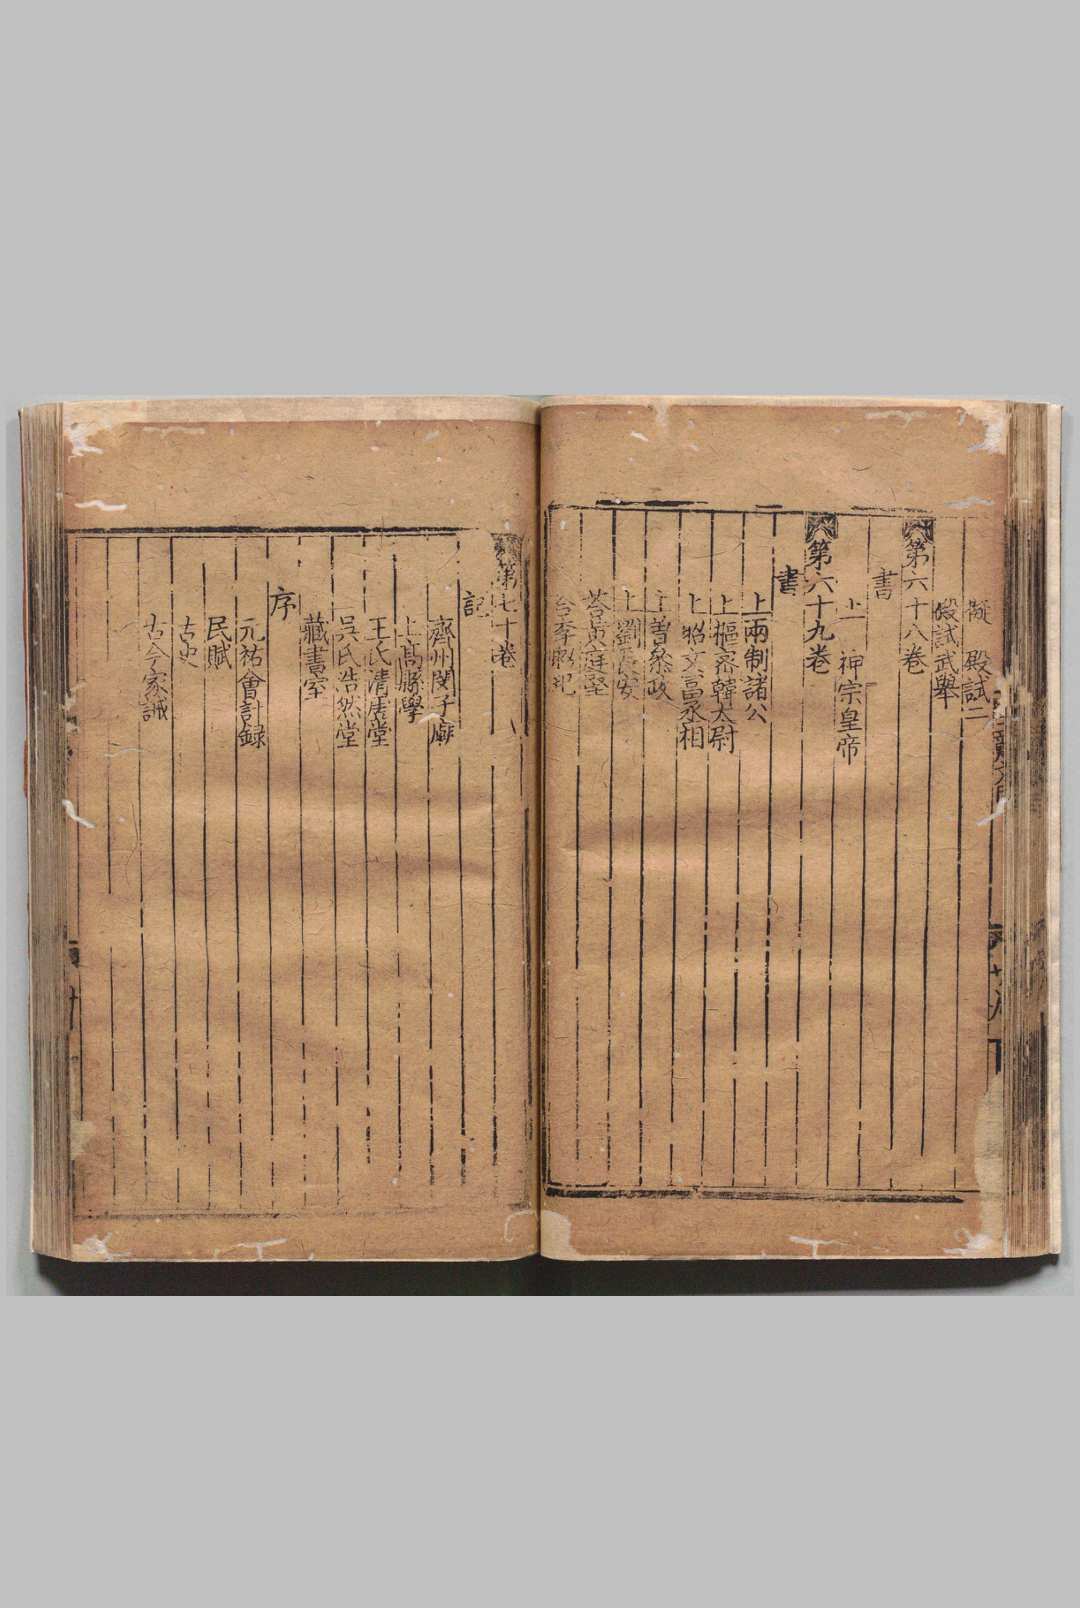 擬 殿試二
殿試武舉
第六十八卷
書
上 神宗皇帝
第六十九卷
書
上兩制諸公
上樞密韓太尉
上昭文富丞相
上曾叅政
上劉長安
荅黃庭堅
第七十卷
記
齊州閔子廟
上高縣學
王氏清虛堂
吳氏浩然堂
藏書室
序
元祐會計録
民賦
古史
古今家誡